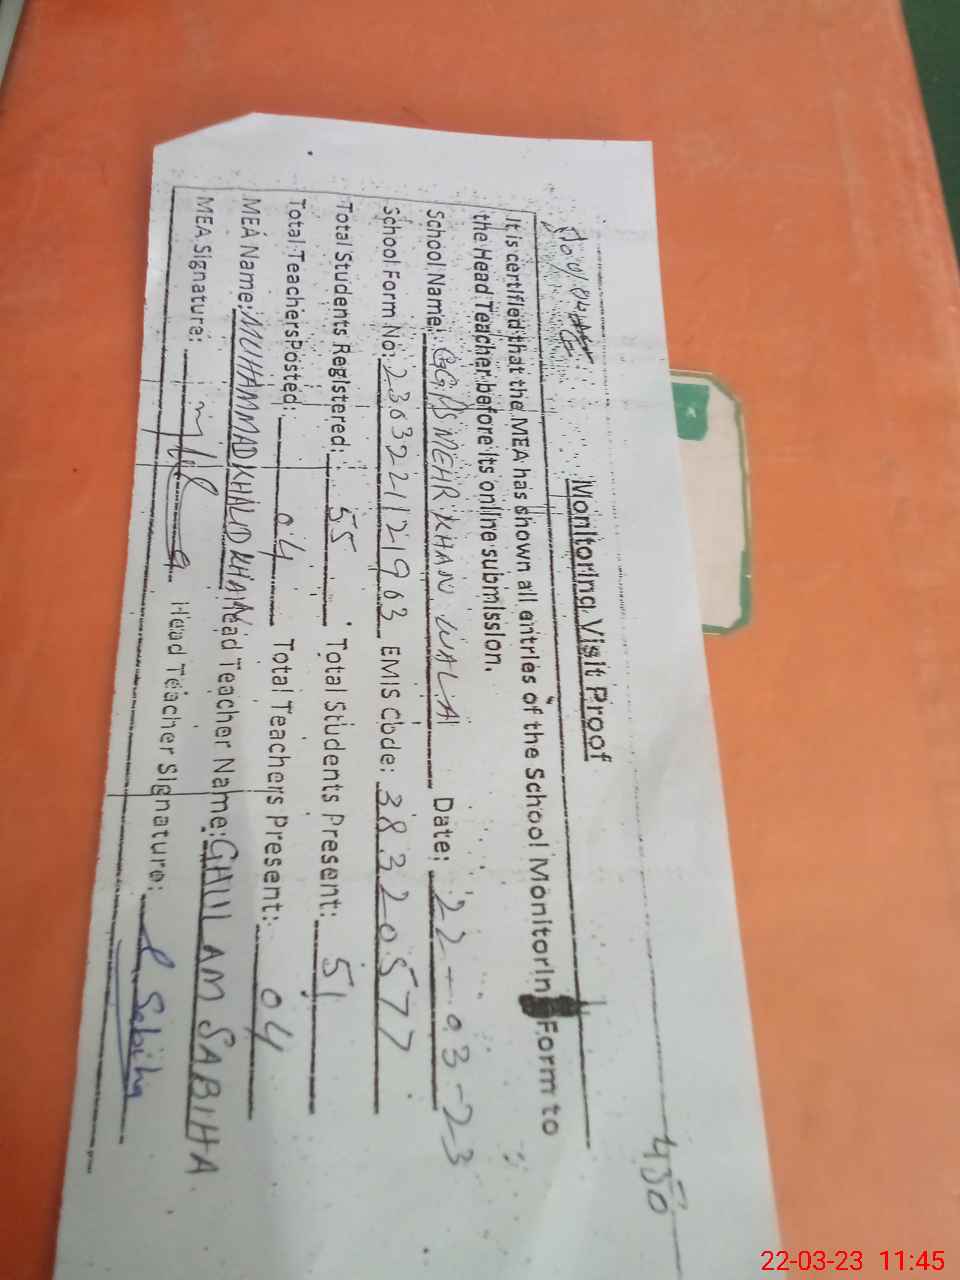 450
Monitoring Visit Proof
It is certified that the MEA has shown all entries of the School Monitorin Form to
the Head Teacher before its online submission.
School Name: GGPS MEHR KHAN WALA Date: 22-03-23
School Form No: 236322121963 EMIS Code: 38320577
Total Students Registered: 55 Total Students Present: 51
Total Teachers Posted: 04 Total Teachers Present: 04
MEA Name: MUHAMMAD KHALID KHAN Head Teacher Name: GHULAM SABIHA
MEA Signature: Head Teacher Signature: Sabiha
22-03-23 11:45